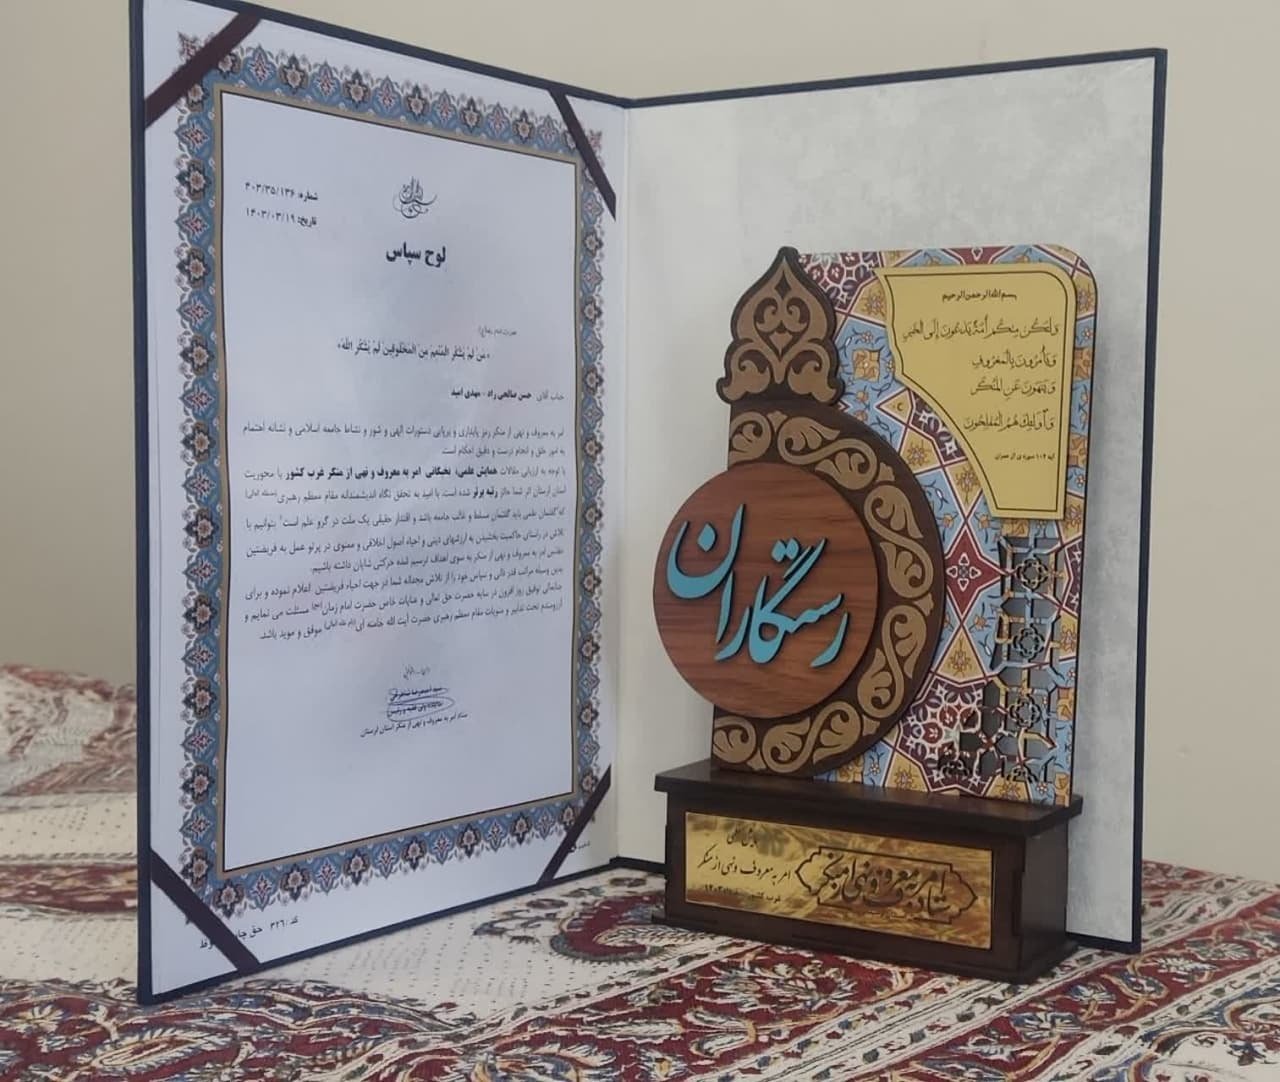 شماره: ۴۰۳/۳۵/۱۳۶
تاریخ: ۱۴۰۳/۰۳/۱۹
لوح سپاس
«مَنْ لَمْ یَشْکُرِ المُنْعِمَ مِنَ المَخْلُوقِینَ لَمْ یَشْکُرِ اللهَ»
جناب آقای حسن صالحی راد - مهدی امید
امر به معروف و نهی از منکر رمز پایداری و برپایی دستورات الهی و شور و نشاط جامعه اسلامی و نشانه اهتمام
به امور خلق و انجام درست و دقیق احکام است.
با توجه به ارزیابی مقالات همایش علمی، نخبگانی امر به معروف و نهی از منکر غرب کشور با محوریت
استان لرستان اثر شما حائز رتبه برتر شده است. با امید به تحقق نگاه اندیشمندانه مقام معظم رهبری
که گفتمان علمی باید گفتمان مسلط و غالب جامعه باشد و اقتدار حقیقی یک ملت در گرو علم است بتوانیم با
تلاش در راستای حاکمیت بخشیدن به ارزشهای دینی و احیاء اصول اخلاقی و معنوی در پرتو عمل به فریضتین
امر به معروف و نهی از منکر به سوی اهداف ترسیم شده حرکتی شایان داشته باشیم.
بدین وسیله مراتب قدردانی و سپاس خود را از تلاش مجدانه شما در جهت احیاء فریضتین اعلام نموده و برای
جنابعالی توفیق روز افزون در سایه حضرت حق تعالی و عنایات خاص حضرت امام زمان مسئلت می نمایم و
آرزومندم تحت تدابیر و منویات مقام معظم رهبری حضرت آیت الله خامنه ای موفق و موید باشید.
سید احمدرضا شاهرخی
نماینده ولی فقیه و رئیس
ستاد امر به معروف و نهی از منکر استان لرستان
کد ۳۲۶۰ حق چاپ
بسم الله الرحمن الرحیم
وَلتَكُن مِنكُم أُمَّةٌ يَدعُونَ إِلَى الخَيرِ
وَيَأمُرُونَ بِالمَعرُوفِ
وَيَنهَونَ عَنِ المُنكَرِ
وَأُولَئِكَ هُمُ المُفلِحُونَ
آیه ۱۰۴ سوره ی آل عمران
رستگاران
امر به معروف و نهی از منکر
غرب کشور
ستاد امر به معروف و نهی از منکر